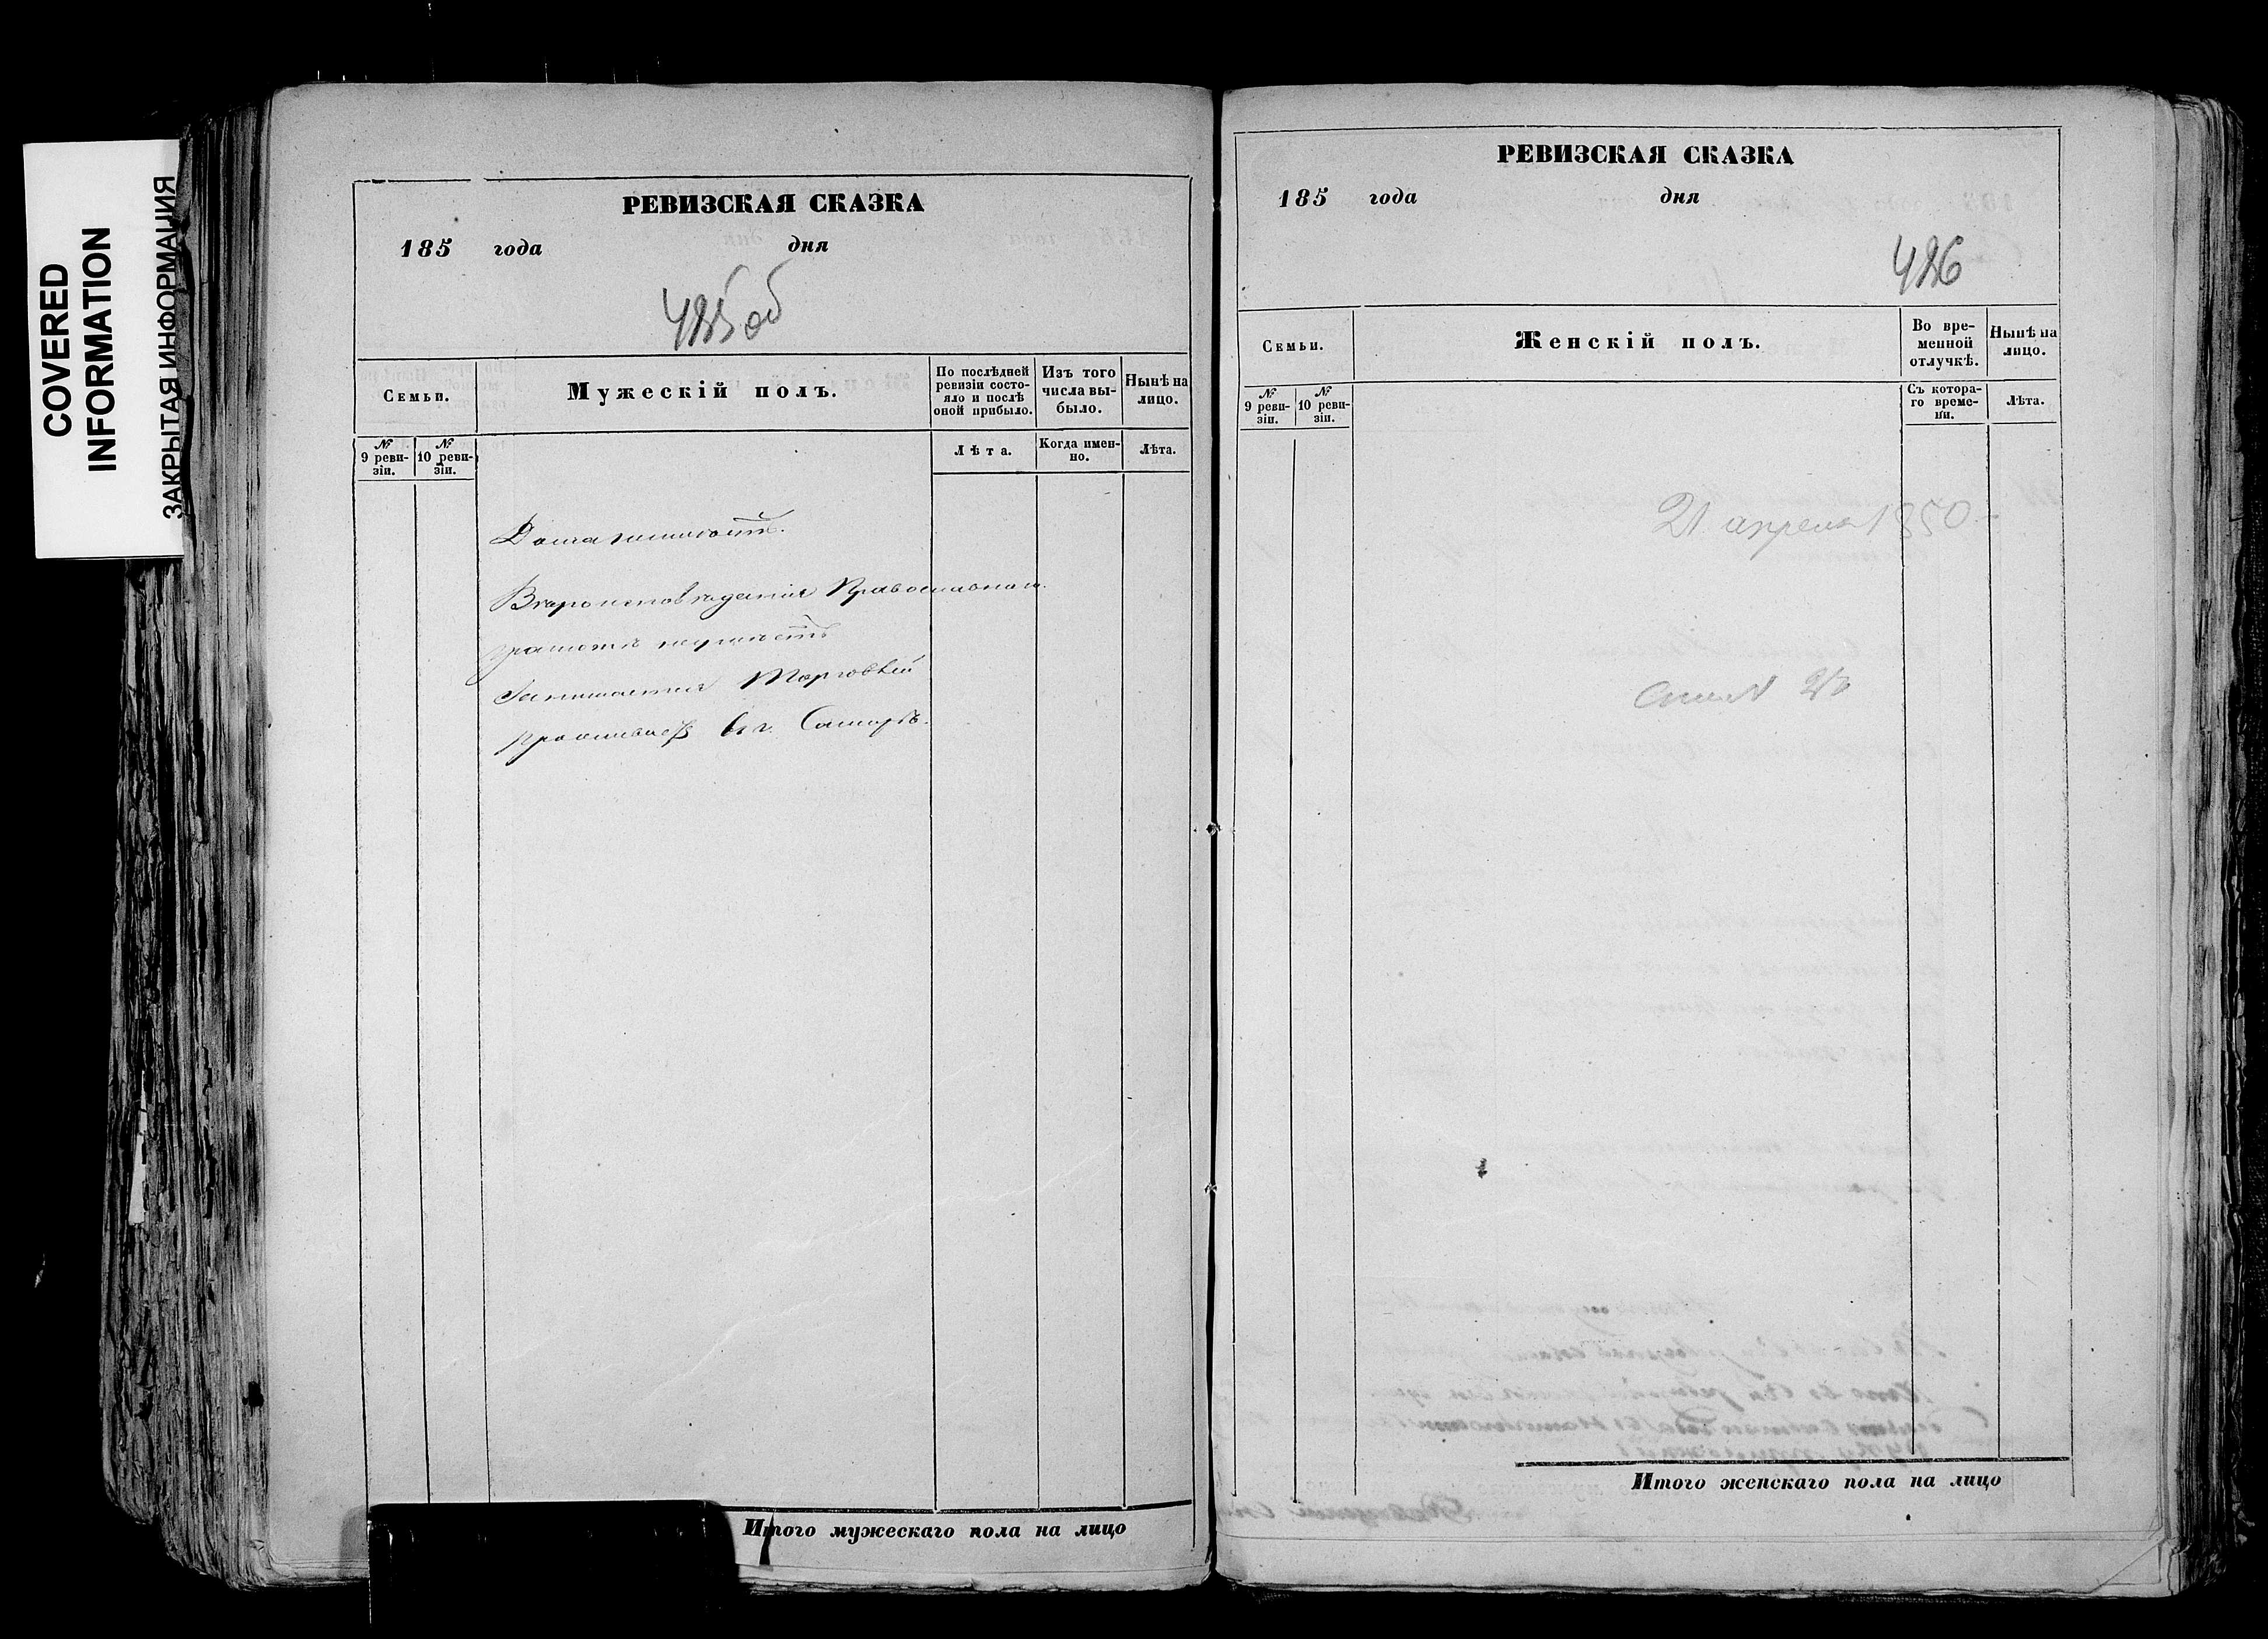 COVERED
INFORMATION
ЗАКРЫТАЯ ИНФОРМАЦИЯ
РЕВИЗСКАЯ СКАЗКА
185 года дня
485об
Семьи.
Мужескій полъ.
По послѣдней ревизіи состояло и послѣ оной прибыло.
Изъ того числа выбыло.
Нынѣ на лицо.
№ 9 ревизіи.
№ 10 ревизіи.
Лѣта.
Когда именно.
Лѣта.
Вѣроисповѣданія Православнаго.
грамотѣ неумѣетъ
Занимается Торговлей
Проживаетъ въ г. Самарѣ.
Итого мужескаго пола на лицо
РЕВИЗСКАЯ СКАЗКА
185 года дня
486
Семьи.
Женскій полъ.
Во временной отлучкѣ.
Нынѣ на лицо.
№ 9 ревизіи.
№ 10 ревизіи.
Съ котораго времени.
Лѣта.
21 апреля 1850
Итого женскаго пола на лицо